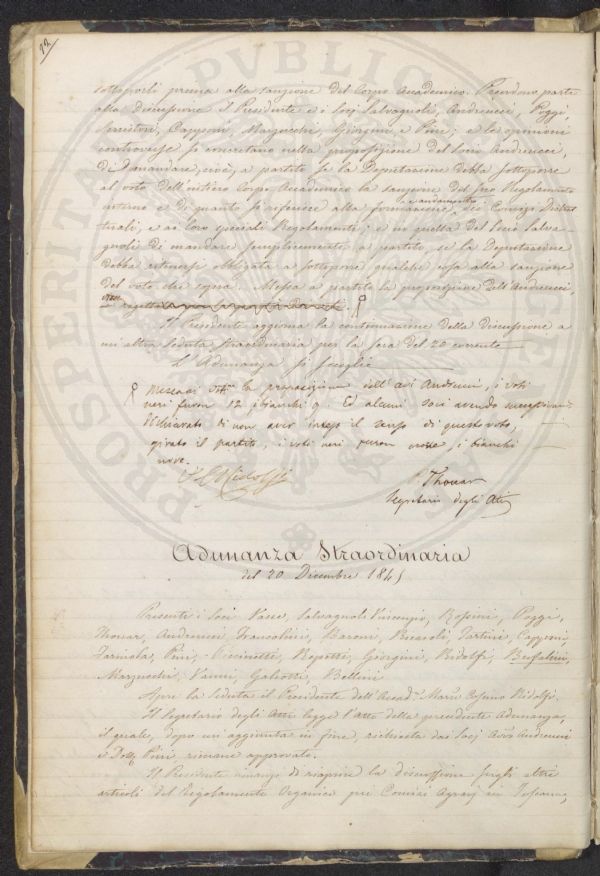 92
sottoporli prima alla sanzione del Corpo Accademico. Prendono parte
alla discussione il Presidente e i Socj Salvagnoli, Andreucci, Poggi,
Serristori, Capponi, Marzucchi, Giorgini, e Pini; e le opinioni
controverse si concretano nella proposizione del Socio Andreucci,
di mandare, cioè, a partito se la Deputazione debba sottoporre
al voto dell'intiero Corpo Accademico la sanzione del suo Regolamento
interno e di quanto si riferisce alla formazione e andamento dei Comizj Distret
tuali, e ai loro speciali Regolamenti; e in quella del Socio Salva-
gnoli di mandare semplicemente a partito se la Deputazione
debba ritenersi obbligata a sottoporre qualche cosa alla sanzione
del voto che sopra. Messa a partito la proposizione dell'Andreucci,
rigettata
Il Presidente aggiorna la continuazione della discussione a
un'altra seduta straordinaria per la sera del 20 corrente
L'Adunanza si scioglie
Messa ai Voti la proposizione dell' Andreucci, i voti
neri furon 12 i bianchi 9 Ed alcuni soci avendo
dichiarato di non aver inteso il senso di questo voto,
girato il partito, i voti neri furon nove, i bianchi
nove.
C. Ridolfi
P. Thouar
Segretario degli Atti
Adunanza Straordinaria
del 20 Dicembre 1845
Presenti i Soci Vasse, Salvagnoli Vincenzio, Rossini, Poggi,
Thouar, Andreucci, Francolini, Baroni, Ricasoli, Tartini, Capponi,
Farniola, Pini, Piccinetti, Repetti, Giorgini, Ridolfi, Bufalini,
Marzucchi, Vanni, Galeotti, Bellini
Apre la seduta il Presidente dell'Accad.a March. Cosimo Ridolfi.
Il Segretario degli Atti legge l'atto della precedente Adunanza,
il quale, dopo un'aggiunta in fine, richiesta dai Socj Avv. Andreucci
e Dott. Pini, rimane approvato.
Il Presidente annunzia di riaprire la discussione sugli altri
articoli del Regolamento Organico pei Comizi Agrarj in Toscana,
PROSPERITATI PVBLICAE AVGENDAE